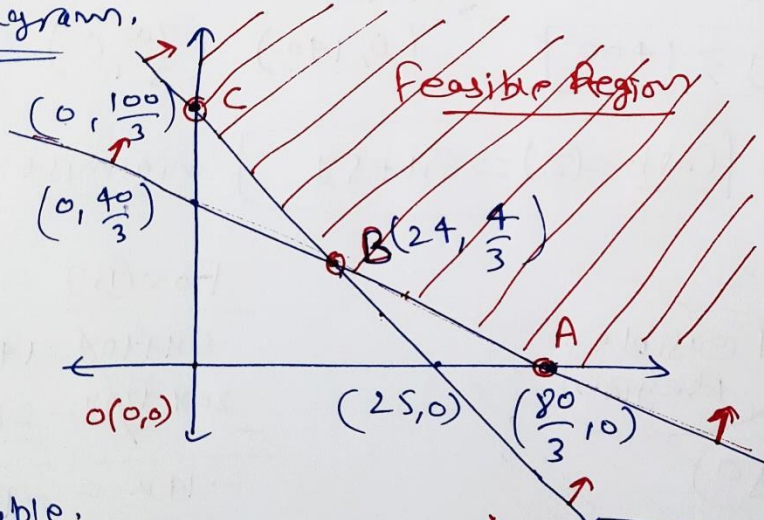 gram.
C
Feasible Region
(0, 100/3)
(0, 40/3)
B(24, 4/3)
A
O(0,0)
(25,0)
(80/3, 0)
ble.